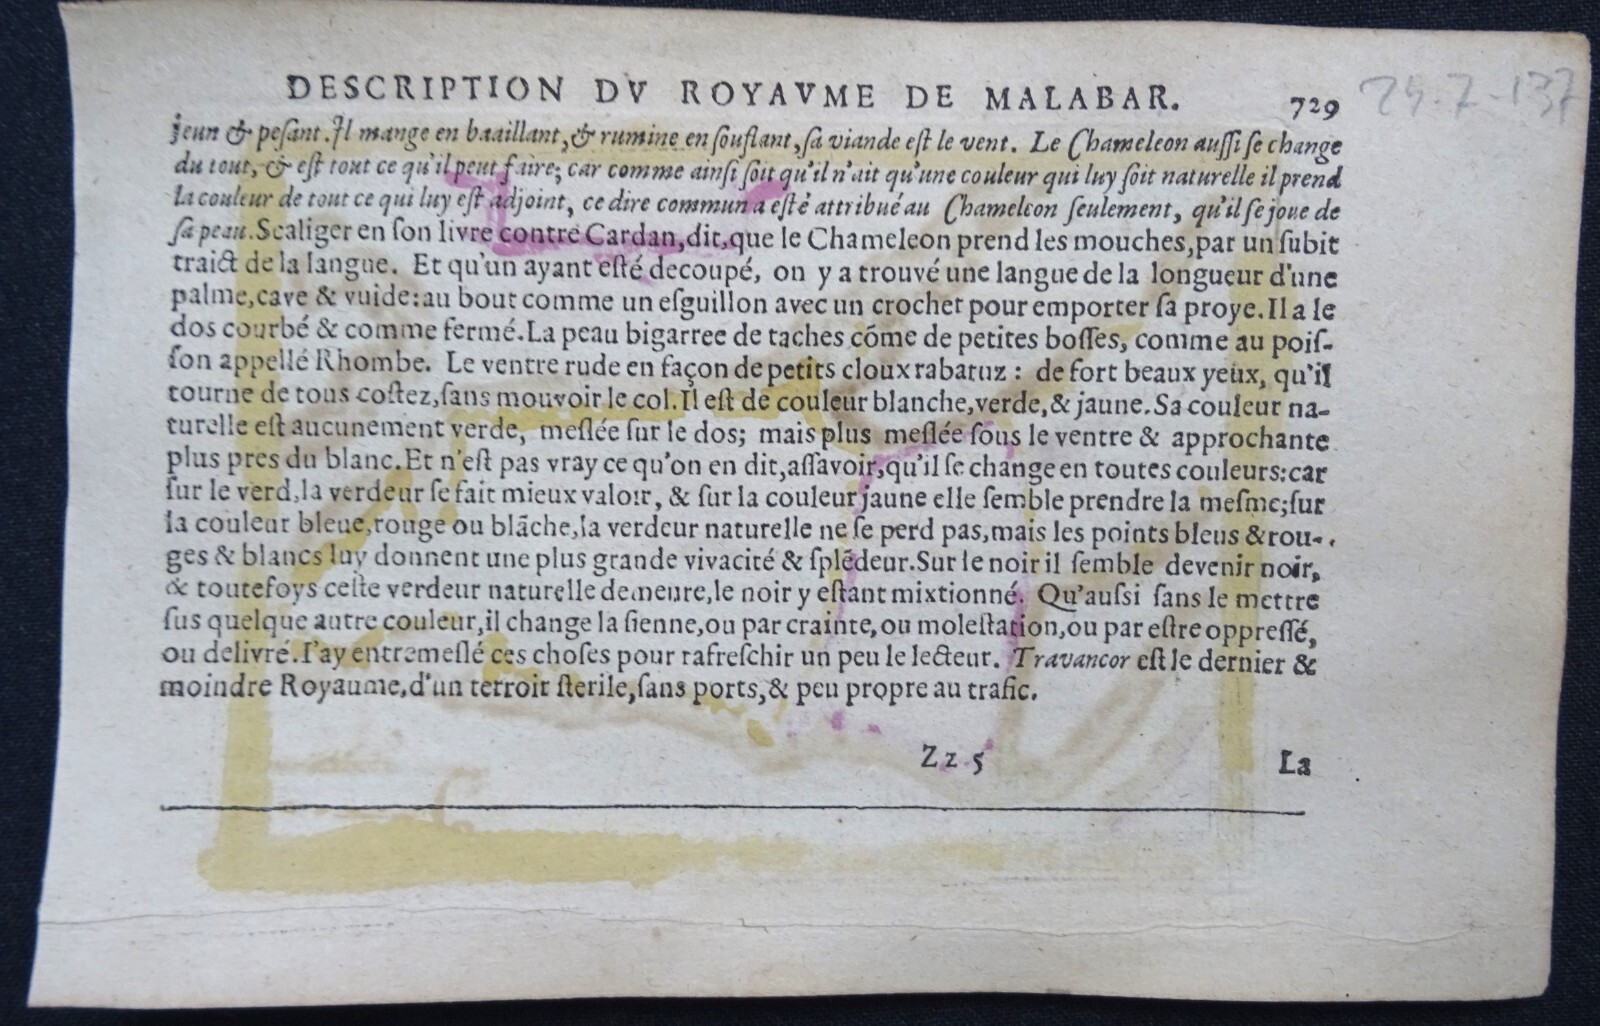 DESCRIPTION DV ROYAVME DE MALABAR. 729
25-7-137
jeun & peſant. Il mange en baaillant, & rumine en ſouflant, ſa viande eſt le vent. Le Chameleon auſſi ſe change
du tout, & eſt tout ce qu'il peut faire; car comme ainſi ſoit qu'il n'ait qu'une couleur qui luy ſoit naturelle il prend
la couleur de tout ce qui luy eſt adjoint, ce dire commun a eſté attribué au Chameleon ſeulement, qu'il ſe joue de
ſa peau. Scaliger en ſon livre contre Cardan, dit, que le Chameleon prend les mouches, par un ſubit
traict de la langue. Et qu'un ayant eſté decoupé, on y a trouvé une langue de la longueur d'une
palme, cave & vuide: au bout comme un eſguillon avec un crochet pour emporter ſa proye. Il a le
dos courbé & comme fermé. La peau bigarree de taches cõme de petites boſſes, comme au poiſ-
ſon appellé Rhombe. Le ventre rude en façon de petits cloux rabatuz: de fort beaux yeux, qu'il
tourne de tous coſtez, ſans mouvoir le col. Il eſt de couleur blanche, verde, & jaune. Sa couleur na-
turelle eſt aucunement verde, meſlée ſur le dos; mais plus meſlée ſous le ventre & approchante
plus pres du blanc. Et n'eſt pas vray ce qu'on en dit, aſſavoir, qu'il ſe change en toutes couleurs: car
ſur le verd, la verdeur ſe fait mieux valoir, & ſur la couleur jaune elle ſemble prendre la meſme; ſur
la couleur bleue, rouge ou blãche, la verdeur naturelle ne ſe perd pas, mais les points bleus & rou-
ges & blancs luy donnent une plus grande vivacité & ſplẽdeur. Sur le noir il ſemble devenir noir,
& toutefoys ceſte verdeur naturelle demeure, le noir y eſtant mixtionné. Qu'auſsi ſans le mettre
ſus quelque autre couleur, il change la ſienne, ou par crainte, ou moleſtation, ou par eſtre oppreſſé,
ou delivré. I'ay entremeſlé ces choſes pour rafreſchir un peu le lecteur. Travancor eſt le dernier &
moindre Royaume, d'un terroir ſterile, ſans ports, & peu propre au trafic.
Zz 5 La